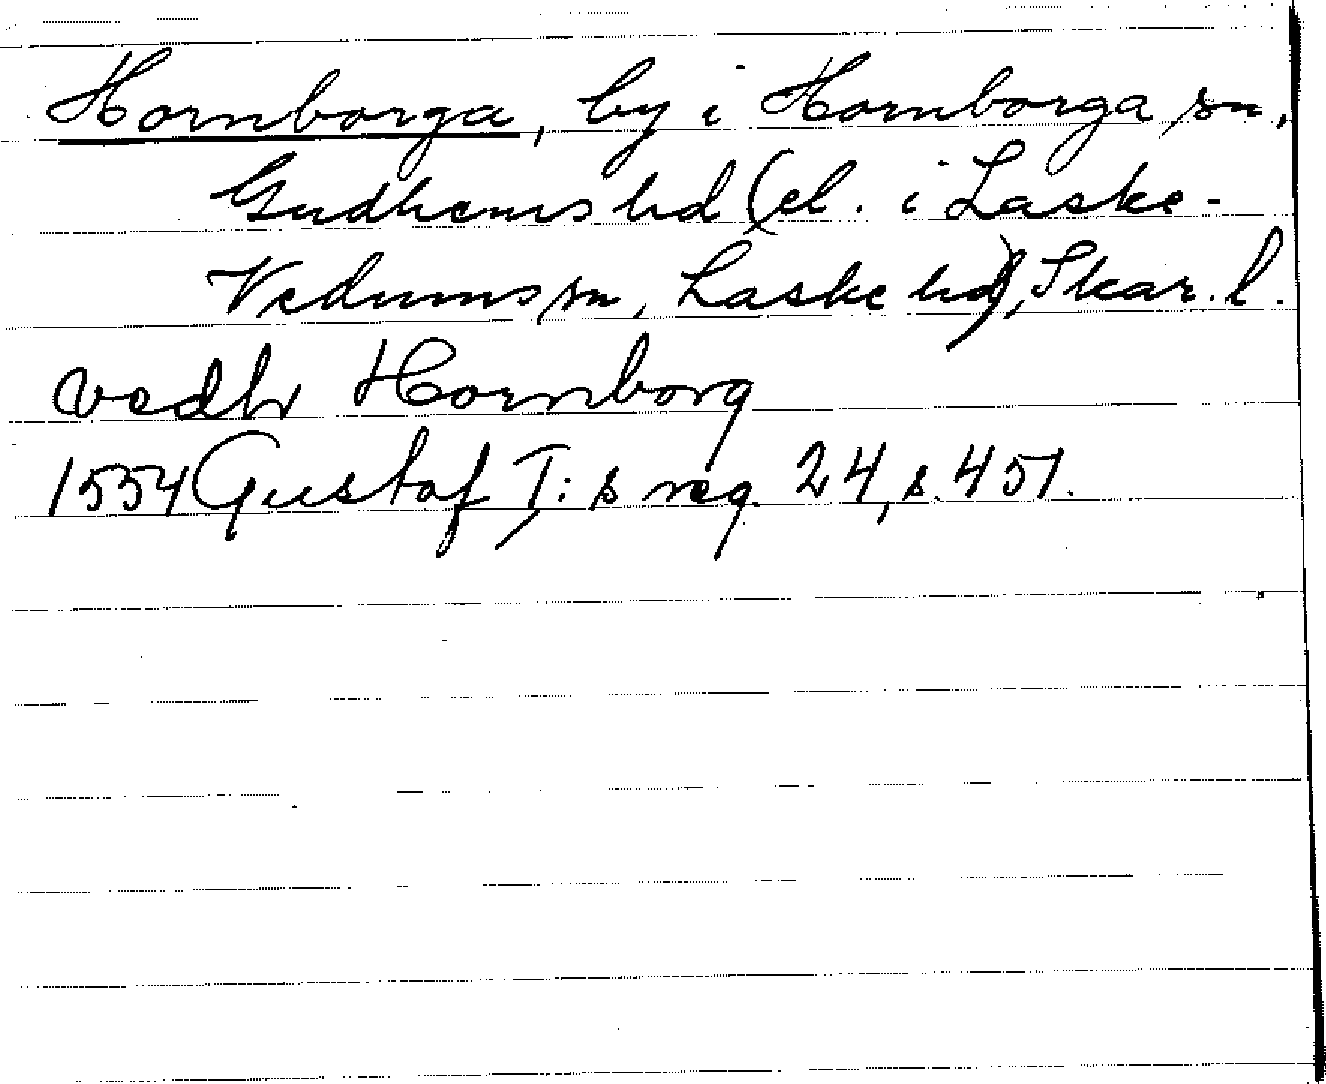 Hornborga, by i Hornborga sn,
Gudhems hd (el. i Laske-
Vedums sn, Laske hd), Skar. l.
vedh Hornborg
1554 Gustaf I:s reg. 24, s. 451.